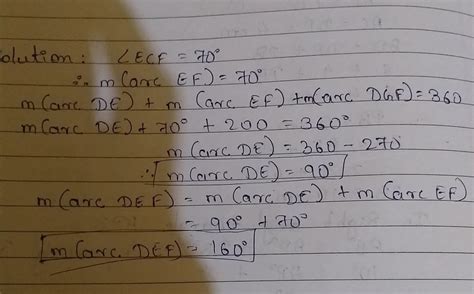 olution: ∠ECF = 70°
∴ m(arc EF) = 70°
m(arc DE) + m (arc EF) + m(arc DGF) = 360
m(arc DE) + 70° + 200 = 360°
m(arc DE) = 360 - 270
∴ m(arc DE) = 90°
m(arc DEF) = m(arc DE) + m(arc EF)
= 90° + 70°
m(arc. DEF) = 160°